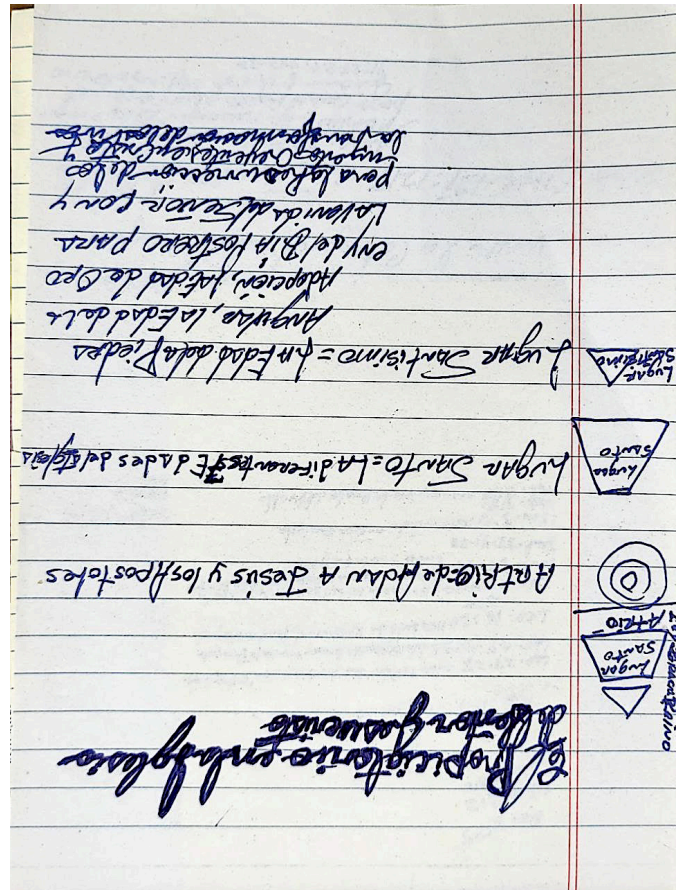 El Propiciatorio en la Iglesia
del Señor Jesucristo
Lugar
Santo
ATRIO
AtRio=de Adan A Jesús y los Apostoles
Lugar
Santo
Lugar Santo=LA diferentes 7 Edades de la Iglesia
Lugar
Santisimo
Lugar Santisimo = LA Edad de la Piedra
Angular, la Edad de la
Adopción, LA Edad de Oro
en y del DIA Postrero para
La Venida del Señor con y
para la Resurrección de los
muertos Creyentes en Cristo y
la transformación de los vivos